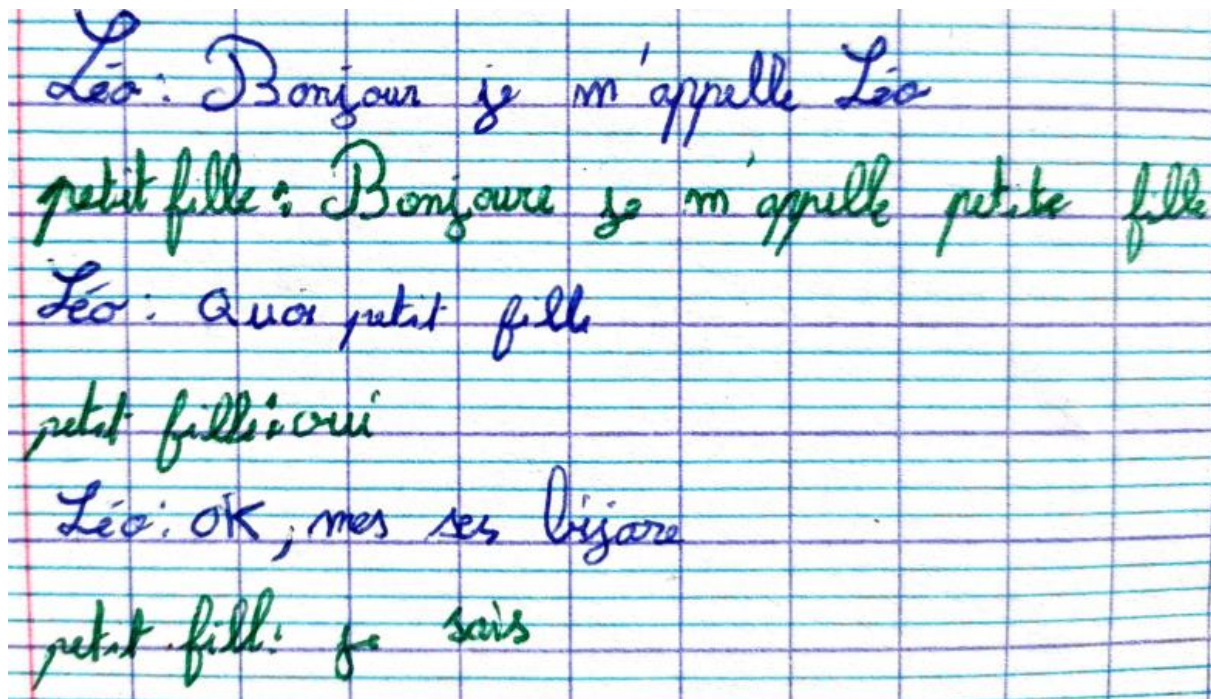 Léo : Bonjour je m'appelle Léo
petit fille : Bonjoure je m'appelle petite fille
Léo : Quoi petit fille
petit fille : oui
Léo : OK, mes ses bijare
petit fill : je sais